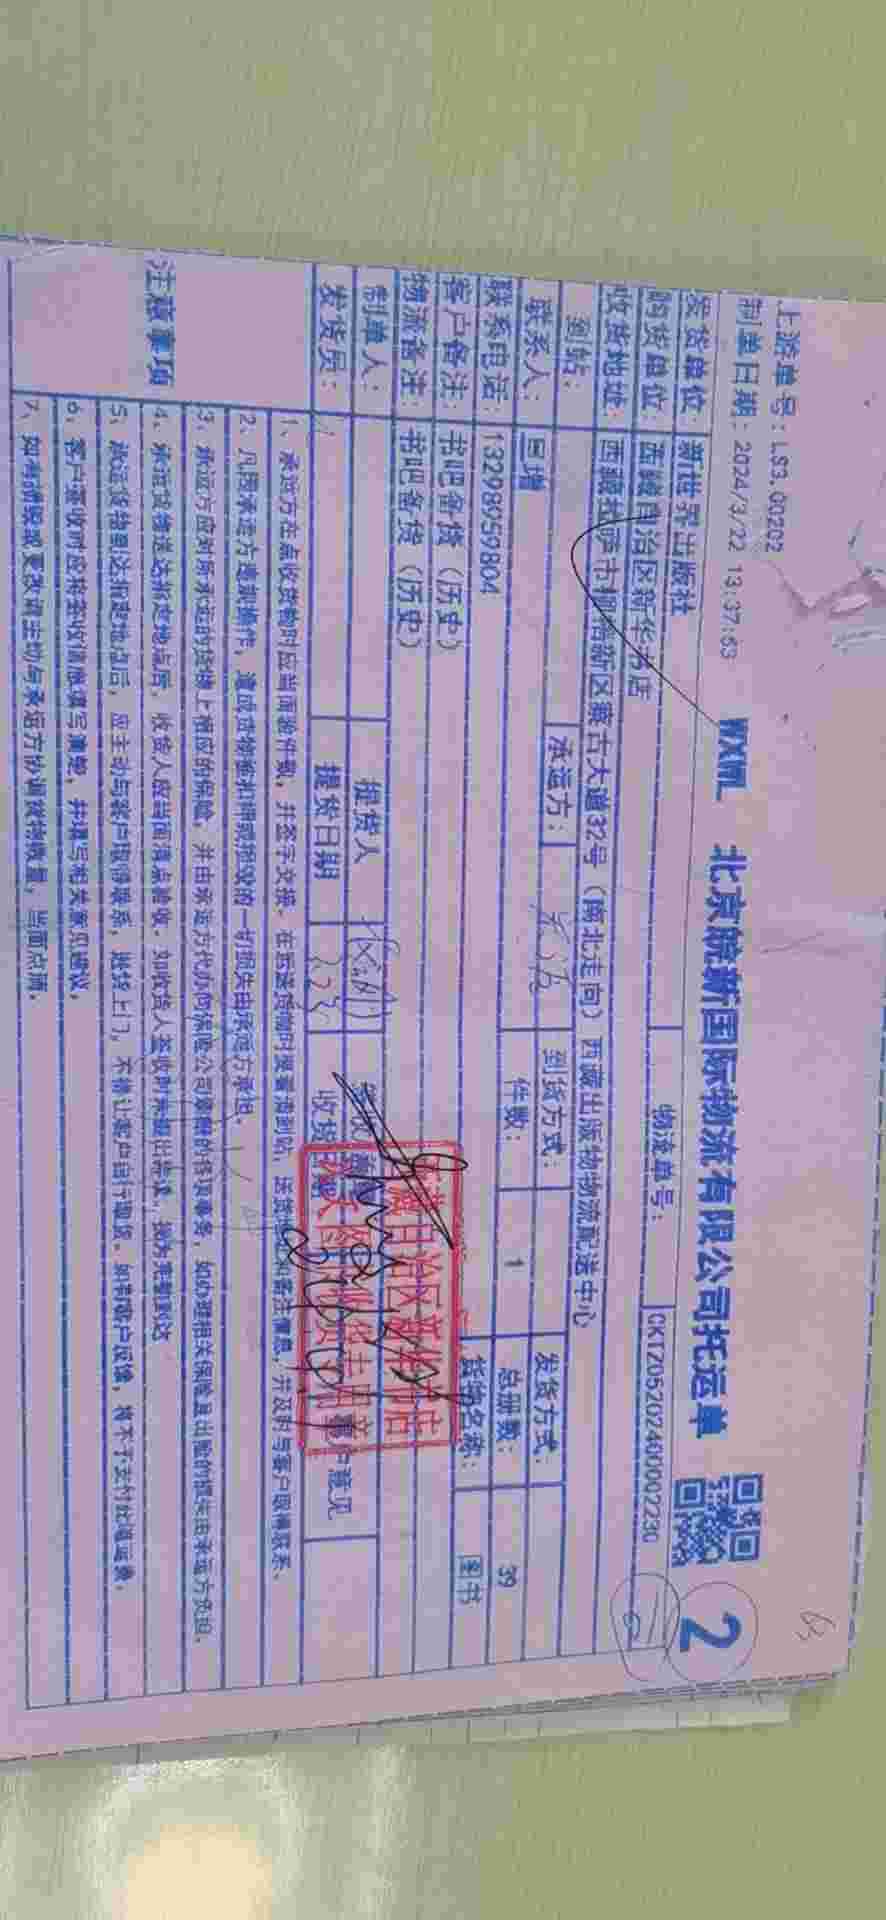 上游单号：LS3.00202
制单日期：2024/3/22 13:37:53
WXWL 北京皖新国际物流有限公司托运单
2
发货单位 新世界出版社 物流单号： CKT2052024000002230
购货单位 西藏自治区新华书店
收货地址 西藏拉萨市柳梧新区蒙古大道32号（南北走向）西藏出版物物流配送中心
到站： 承运方： 到货方式： 发货方式：
联系人： 旦增 件数： 1 总册数： 39
联系电话：13298959804 货物名称： 图书
客户备注：书吧备货（历史）
物流备注：书吧备货（历史）
制单人： 提货人
发货员： 提货日期 收货日期 客户意见
西藏自治区新华书店
注意事项
1、承运方在点收货物时应当面验件数，并签字交接。在运送货物时要看清到站、送货地址和备注信息，并及时与客户取得联系。
2、凡因承运方违规操作，造成货物被扣押或损毁的一切损失由承运方承担。
3、承运方应对所承运的货物上相应的保险，并由承运方代办向保险公司索赔的各项事务，如办理相关保险及出险的损失由承运方负担。
4、承运货物送达指定地点后，收货人应当面清点验收。如收货人签收时未提出异议，视为完整到达
5、承运货物到达指定地点后，应主动与客户取得联系，送货上门，不得让客户自行提货。如有客户反馈，将不予支付此项运费。
6、客户签收时应将签收信息填写清楚，并填写相关意见建议。
7、如有拼毁或更改请主动与承运方协调货物数量，当面点清。